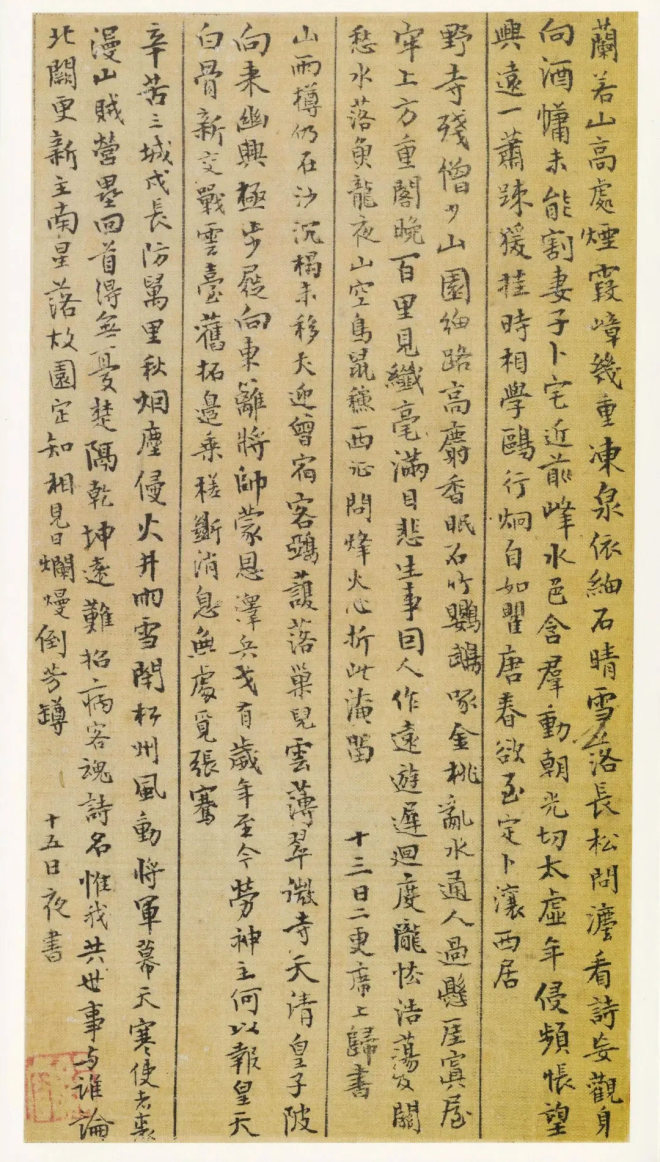 蘭若山高處煙霞嶂幾重凍泉依細石晴雪落長松問灋看詩妄觀身
向酒慵未能割妻子卜宅近前峰水色含羣動朝光切太虛年侵頻悵望
興遠一蕭踈猨挂時相學鷗行炯自如瞿唐春欲至定卜瀼西居
野寺殘僧少山園細路高麝香眠石竹鸚鵡啄金桃亂水通人過懸厓寘屋
牢上方重閣晚百里見纖毫滿目悲生事因人作遠遊遲迴度隴怯浩蕩及關
愁水落魚龍夜山空鳥鼠穐西征問烽火心折此淹留 十三日二更席上歸書
山雨樽仍在沙沉榻未移犬迎曾宿客鵶護落巢兒雲薄翠微寺天清皇子陂
向來幽興極步屧向東籬將帥蒙恩澤兵戈有歲年至今勞神主何以報皇天
白骨新交戰雲臺舊拓邊乘槎斷消息無處覓張騫
辛苦三城戍長防萬里秋烟塵侵火井雨雪閉松州風動將軍幕天寒使者裘
漫山賊營壘回首得無憂楚隅乾坤遠難招病客魂詩名惟我共世事与誰論
北闕更新主南星落故園定知相見日爛熳倒芳罇 十五日夜書